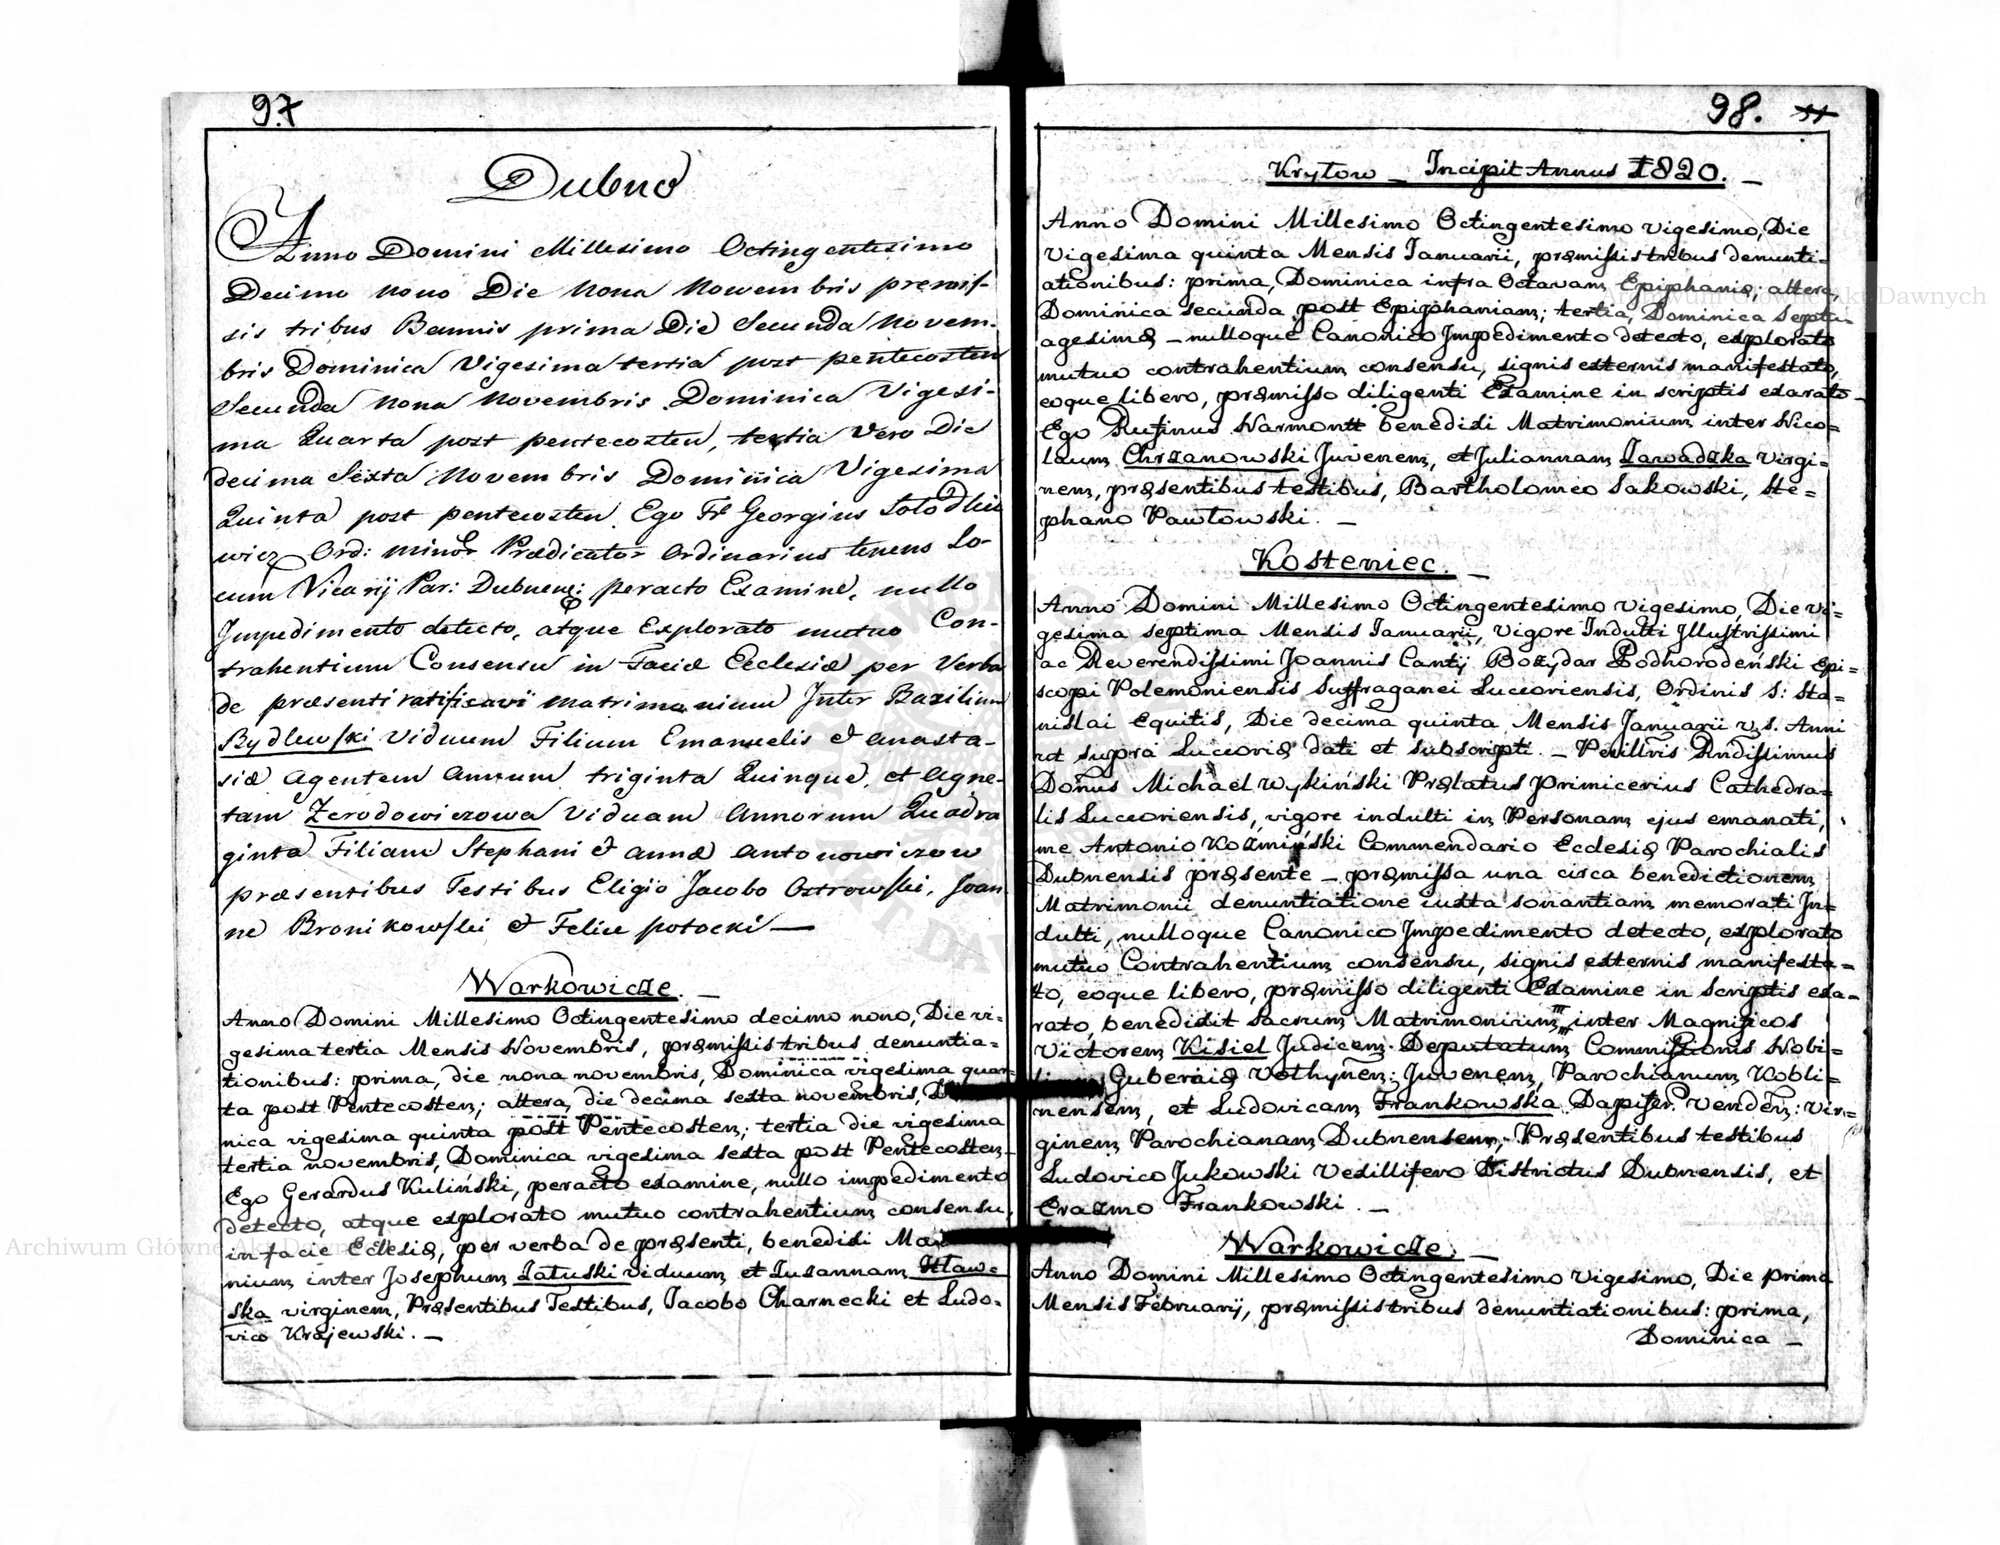 97
Dubno
Anno Domini Millesimo Octingentesimo
Decimo nono Die Nona Nowembris premis-
sis tribus Bannis prima Die Secunda Novem-
bris Dominica Vigesima tertia post pentecosten
Secunda Nona Novembris Dominica Vigesi-
ma Quarta post pentecosten, tertia Vero Die
decima Sexta Novembris Dominica Vigesima
Quinta post pentecosten. Ego Fr Georgius
wicz Ord: minor Prædicator Ordinarius tenens Lo-
cum Vicarij Par: Dubnens: peracto Examine, nullo
Impedimento detecto, atque Explorato mutuo Con-
trahentium Consensu in Faciæ Ecclesiæ per Verba
de præsenti ratificavi matrimonium Inter Basilium
Rydlewski Viduum Filium Emanuelis & Anasta-
siæ agentem annum triginta Quinque, et Agne-
tam Zerodowiczowa Viduam Annorum Quadra
ginta Filiam Stephani & Annæ Antonowiczow
præsentibus Testibus Eligio Jacobo Ostrowski, Joan
ne Bronikowski & Felice potocki —
Warkowicze. —
Anno Domini Millesimo Octingentesimo decimo nono, Die vi=
gesima tertia Mensis Novembris, præmissis tribus denuntia=
tionibus: prima, die nona novembris, Dominica vigesima quar=
ta post Pentecosten; altera, die decima sexta novembris,
nica vigesima quinta post Pentecosten; tertia die vigesima
tertia novembris, Dominica vigesima sexta post Pentecosten
Ego Gerardus Kuliński, peracto examine, nullo impedimento
detecto, atque explorato mutuo contrahentium consensu,
in facie Eclesiæ, per verba de præsenti, benedixi
nium inter Josephum Zatuski viduum et Zuzannam Hław=
ska virginem, Præsentibus Testibus, Jacobo Charnecki et Ludo=
vico Krajewski. —
98.
Kryłow — Incipit Annus 1820. —
Anno Domini Millesimo Octingentesimo vigesimo, Die
vigesima quinta Mensis Ianuarii, præmissis tribus denunti=
ationibus: prima, Dominica infra Octavam Epiphaniæ; altera,
Dominica secunda post Epiphaniam; tertia, Dominica Septu=
agesimæ — nulloque Canonico Impedimento detecto, explorato
mutuo contrahentium consensu, signis externis manifestato,
eoque libero, præmisso diligenti Examine in scriptis exarato —
Ego Rufinus Narmontt benedixi Matrimonium inter Nico=
laum Chrzanowski Juvenem, et Juliannam Zawadzka Virgi=
nem, præsentibus testibus, Bartholomeo Sakowski, Ste=
phano Pawłowski. —
Kosteniec. —
Anno Domini Millesimo Octingentesimo vigesimo, Die vi=
gesima septima Mensis Ianuarii, vigore Indulti Illustrissimi
ac Reverendissimi Joannis Cantij Bozydar Podhorodeński Epi=
scopi Polemoniensis Suffraganei Luceoriensis, Ordinis S: Sta=
nislai Equitis, Die decima quinta Mensis Januarii v. s. Anni
ut supra Luceoriæ dati et subscripti. — Perillvis Rndissimus
Dońus Michael Wykiński Prælatus Primicerius Cathedra=
lis Luceoriensis, vigore indulti in Personam ejus emanati,
me Antonio Kozmiński Commendario Ecclesiæ Parochialis
Dubnensis præsente — præmissa una circa benedictionem
Matrimonii denuntiatione iuxta sonantiam memorati In=
dulti, nulloque Canonico Impedimento detecto, explorato
mutuo Contrahentium consensu, signis externis manifesta=
to, eoque libero, præmisso diligenti Examine in scriptis exa=
rato, benedixit Sacrum Matrimonium inter Magnificos
Victorem Kisiel Judicem Deputatum Commissionis Nobi=
Guberniæ Vołhynen: Juvenem, Parochianum Kobli=
nensem, et Ludovicam Frankowska Dapifer: Venden: Vir=
ginem Parochianam Dubnensem, Præsentibus testibus
Ludovico Jukowski Vexillifero Districtus Dubnensis, et
Erazmo Frankowski. —
Warkowicze. —
Anno Domini Millesimo Octingentesimo vigesimo, Die prima
Mensis Februarij, præmissis tribus denuntiationibus: prima,
Dominica —
Archiwum Główne Akt Dawnych